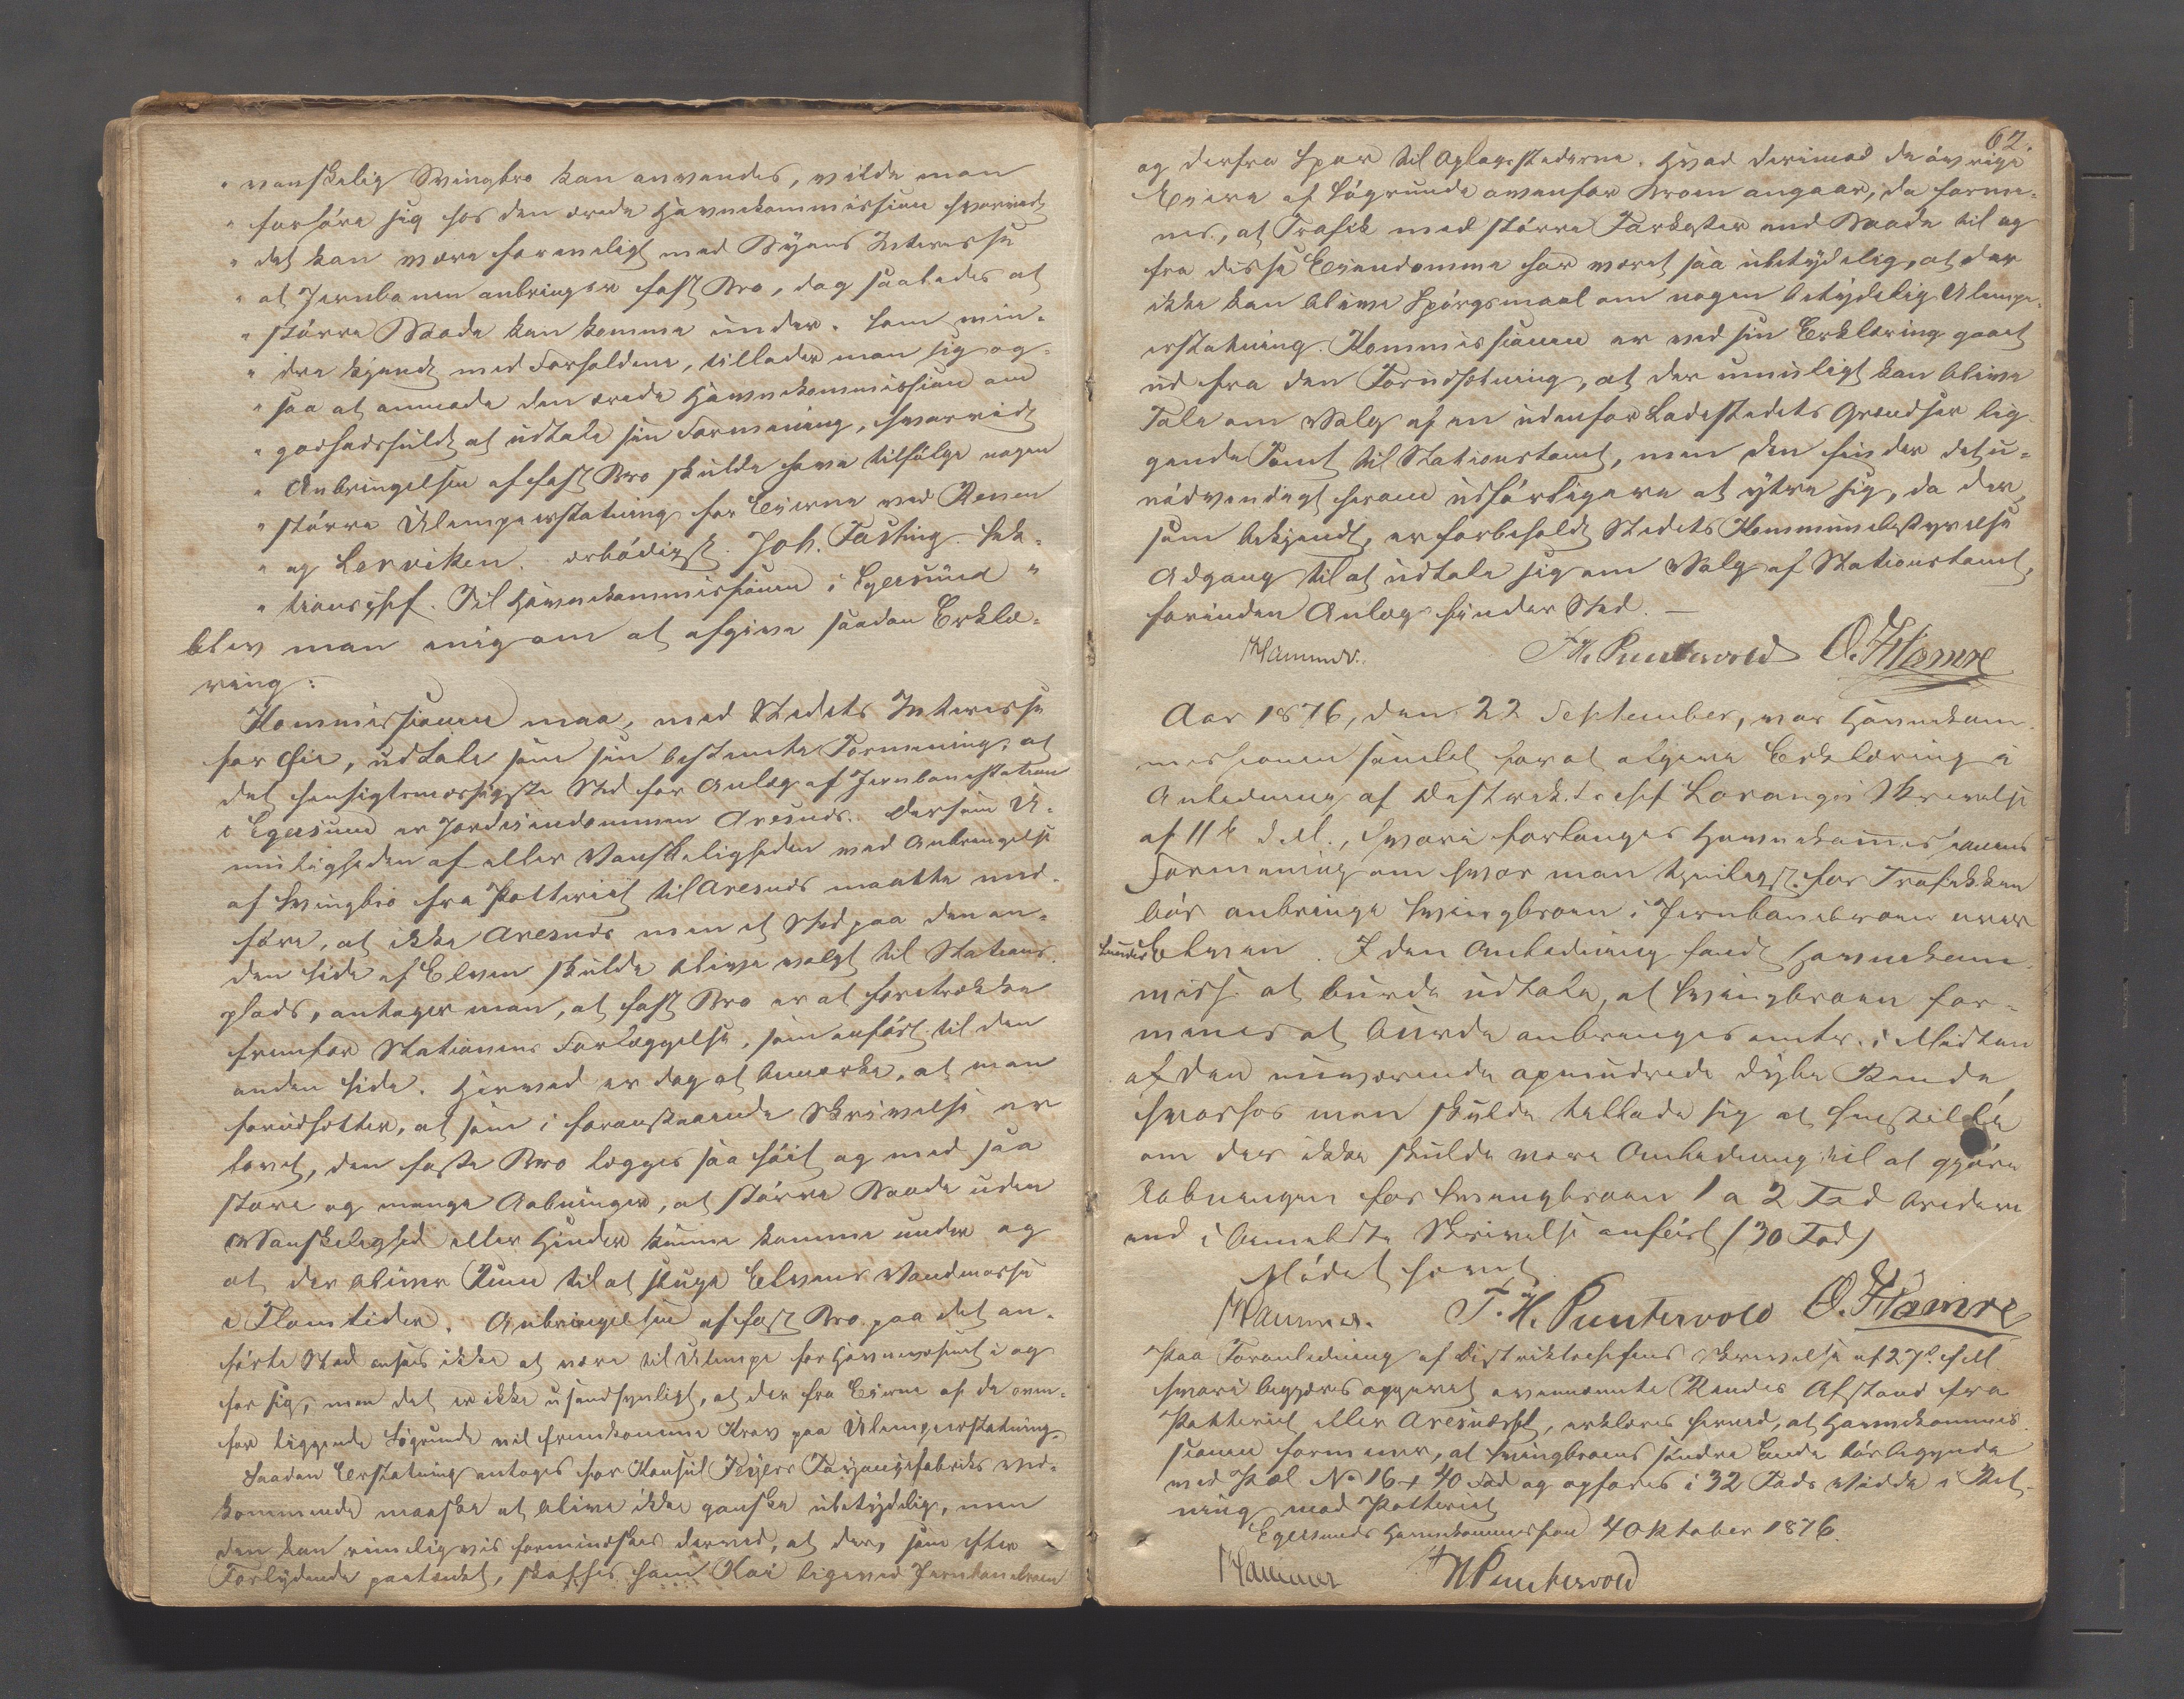 " vanskelig Svingbro kan anvendes, vilde man
" forhøre sig hos den ærede Havnekommission hvorvidt
" det kan være foreneligt med Byens Interesse
" at Jernbanen anbringer fast Bro, dog saaledes at
" større Baade kan komme under. Som min-
" dre kjendt med Forholdene, tillader man sig og-
" saa at anmode den ærede Havnekommission om
" godhedsfuldt at udtale sin Formening, hvorvidt
" Anbringelsen af fast Bro skulde have tilfølge nogen
" større Ulempeerstatning for Eierne ved Ævnen
" og Lerviken. ærbødigst. Joh. Fasting. Sek-
" tionschef. Til Havnekommissionen i Egersund "
blev man enig om at afgive saadan Erklæ-
ring:
Kommissionen maa, med Stedets Interesse
for Øie, udtale som sin bestemte Formening, at
det hensigtsmæssigste Sted for Anlæg af Jernbanestation
i Egersund er Jordeiendommen Aresnæs. Dersom U-
muligheden af eller Vanskeligheden ved Anbringelse
af Svingbro fra Potteriet til Aresnæs maatte med-
føre, at ikke Aresnæs men et Sted paa den an-
den Side af Elven skulde blive valgt til Stations-
plads, antager man, at fast Bro er at foretrække
fremfor Stationens Forlæggelse, som anført til den
anden Side. Herved er dog at bemærke, at man
forudsætter, at som i foranstaaende Skrivelse er
lovet, den faste Bro lægges saa høit og med saa
store og mange Aabninger, at større Baade uden
Vanskelighed eller Hinder kunne komme under og
at der bliver Rum til at sluge Elvens Vandmasse
i Flomtider. Anbringelsen af fast Bro paa det an-
førte Sted ansees ikke at være til Ulempe for Havnevæsenet i og
for sig, men det er ikke usandsynligt, at der fra Eierne af de oven-
for liggende Søgrunde vil fremkomme Krav paa Ulempeerstatning.
Saadan Erstatning antages for Konsul Feyers Fayancefabriks ved-
kommende maaske at blive ikke ganske ubetydelig, men
den kan rimeligvis formindskes derved, at der, som efter
Forlydende paatænkt, skaffes ham Kai ligeved Jernbanebroen
62.
og derfra Spor til Oplagsstederne. Hvad derimod de øvrige
Eiere af Søgrunde ovenfor Broen angaar, da forme-
nes, at Trafik med større Farkoster end Baade til og
fra disse Eiendomme har været saa ubetydelig, at der
ikke kan blive Spørgsmaal om nogen betydelig Ulempe-
erstatning. Kommissionen er ved sin Erklæring gaaet
ud fra den Forudsætning, at der umuligt kan blive
Tale om Valg af en udenfor Ladestedets Grændser lig-
gende Tomt til Stationstomt, men den finder det u-
nødvendigt herom udførligere at ytre sig, da der,
som bekjendt, er forbeholdt Stedets Kommunebestyrelse
Adgang til at udtale sig om Valg af Stationstomt,
forinden Anlæg finder Sted. —
Hammer. F.H. Puntervold O. Hamre
Aar 1876, den 22 September, var Havnekom-
missionen samlet for at afgive Erklæring i
Anledning af Distriktschef Loranges Skrivelse
af 11te d.M., hvori forlanges Havnekommissionens
Formening om hvor man tjenligst for Trafikken
bør anbringe Svingbroen i Jernbanebroen over
Lunde Elven. I den Anledning fandt Havnekom-
miss. at burde udtale, at Svingbroen for-
menes at burde anbringes omtr. i Midten
af den nuværende opmudrede dybe Rende,
hvorhos man skulde tillade sig at henstille
om der ikke skulde være Anledning til at gjøre
Aabningen for Svingbroen 1 a 2 Fod bredere
end i bemeldte Skrivelse anført (30 Fod)
Mødet hævet
Hammer. F. H. Puntervold O. Hamre
Paa Foranledning af Distriktschefens Skrivelse af 27de f.M.
hvori begjæres opgivet ovennævnte Rendes Afstand fra
Potteriet eller Aresnæsset, erklæres herved, at Havnekommis-
sionen formener, at Svingbroens søndre Ende bør begynde
ved Pæl No 16 + 40 Fod og opføres i 32 Fods Vidde i Ret-
ning mod Potteriet
Egersunds Havnekommission 4 Oktober 1876.
Hammer F H Puntervold